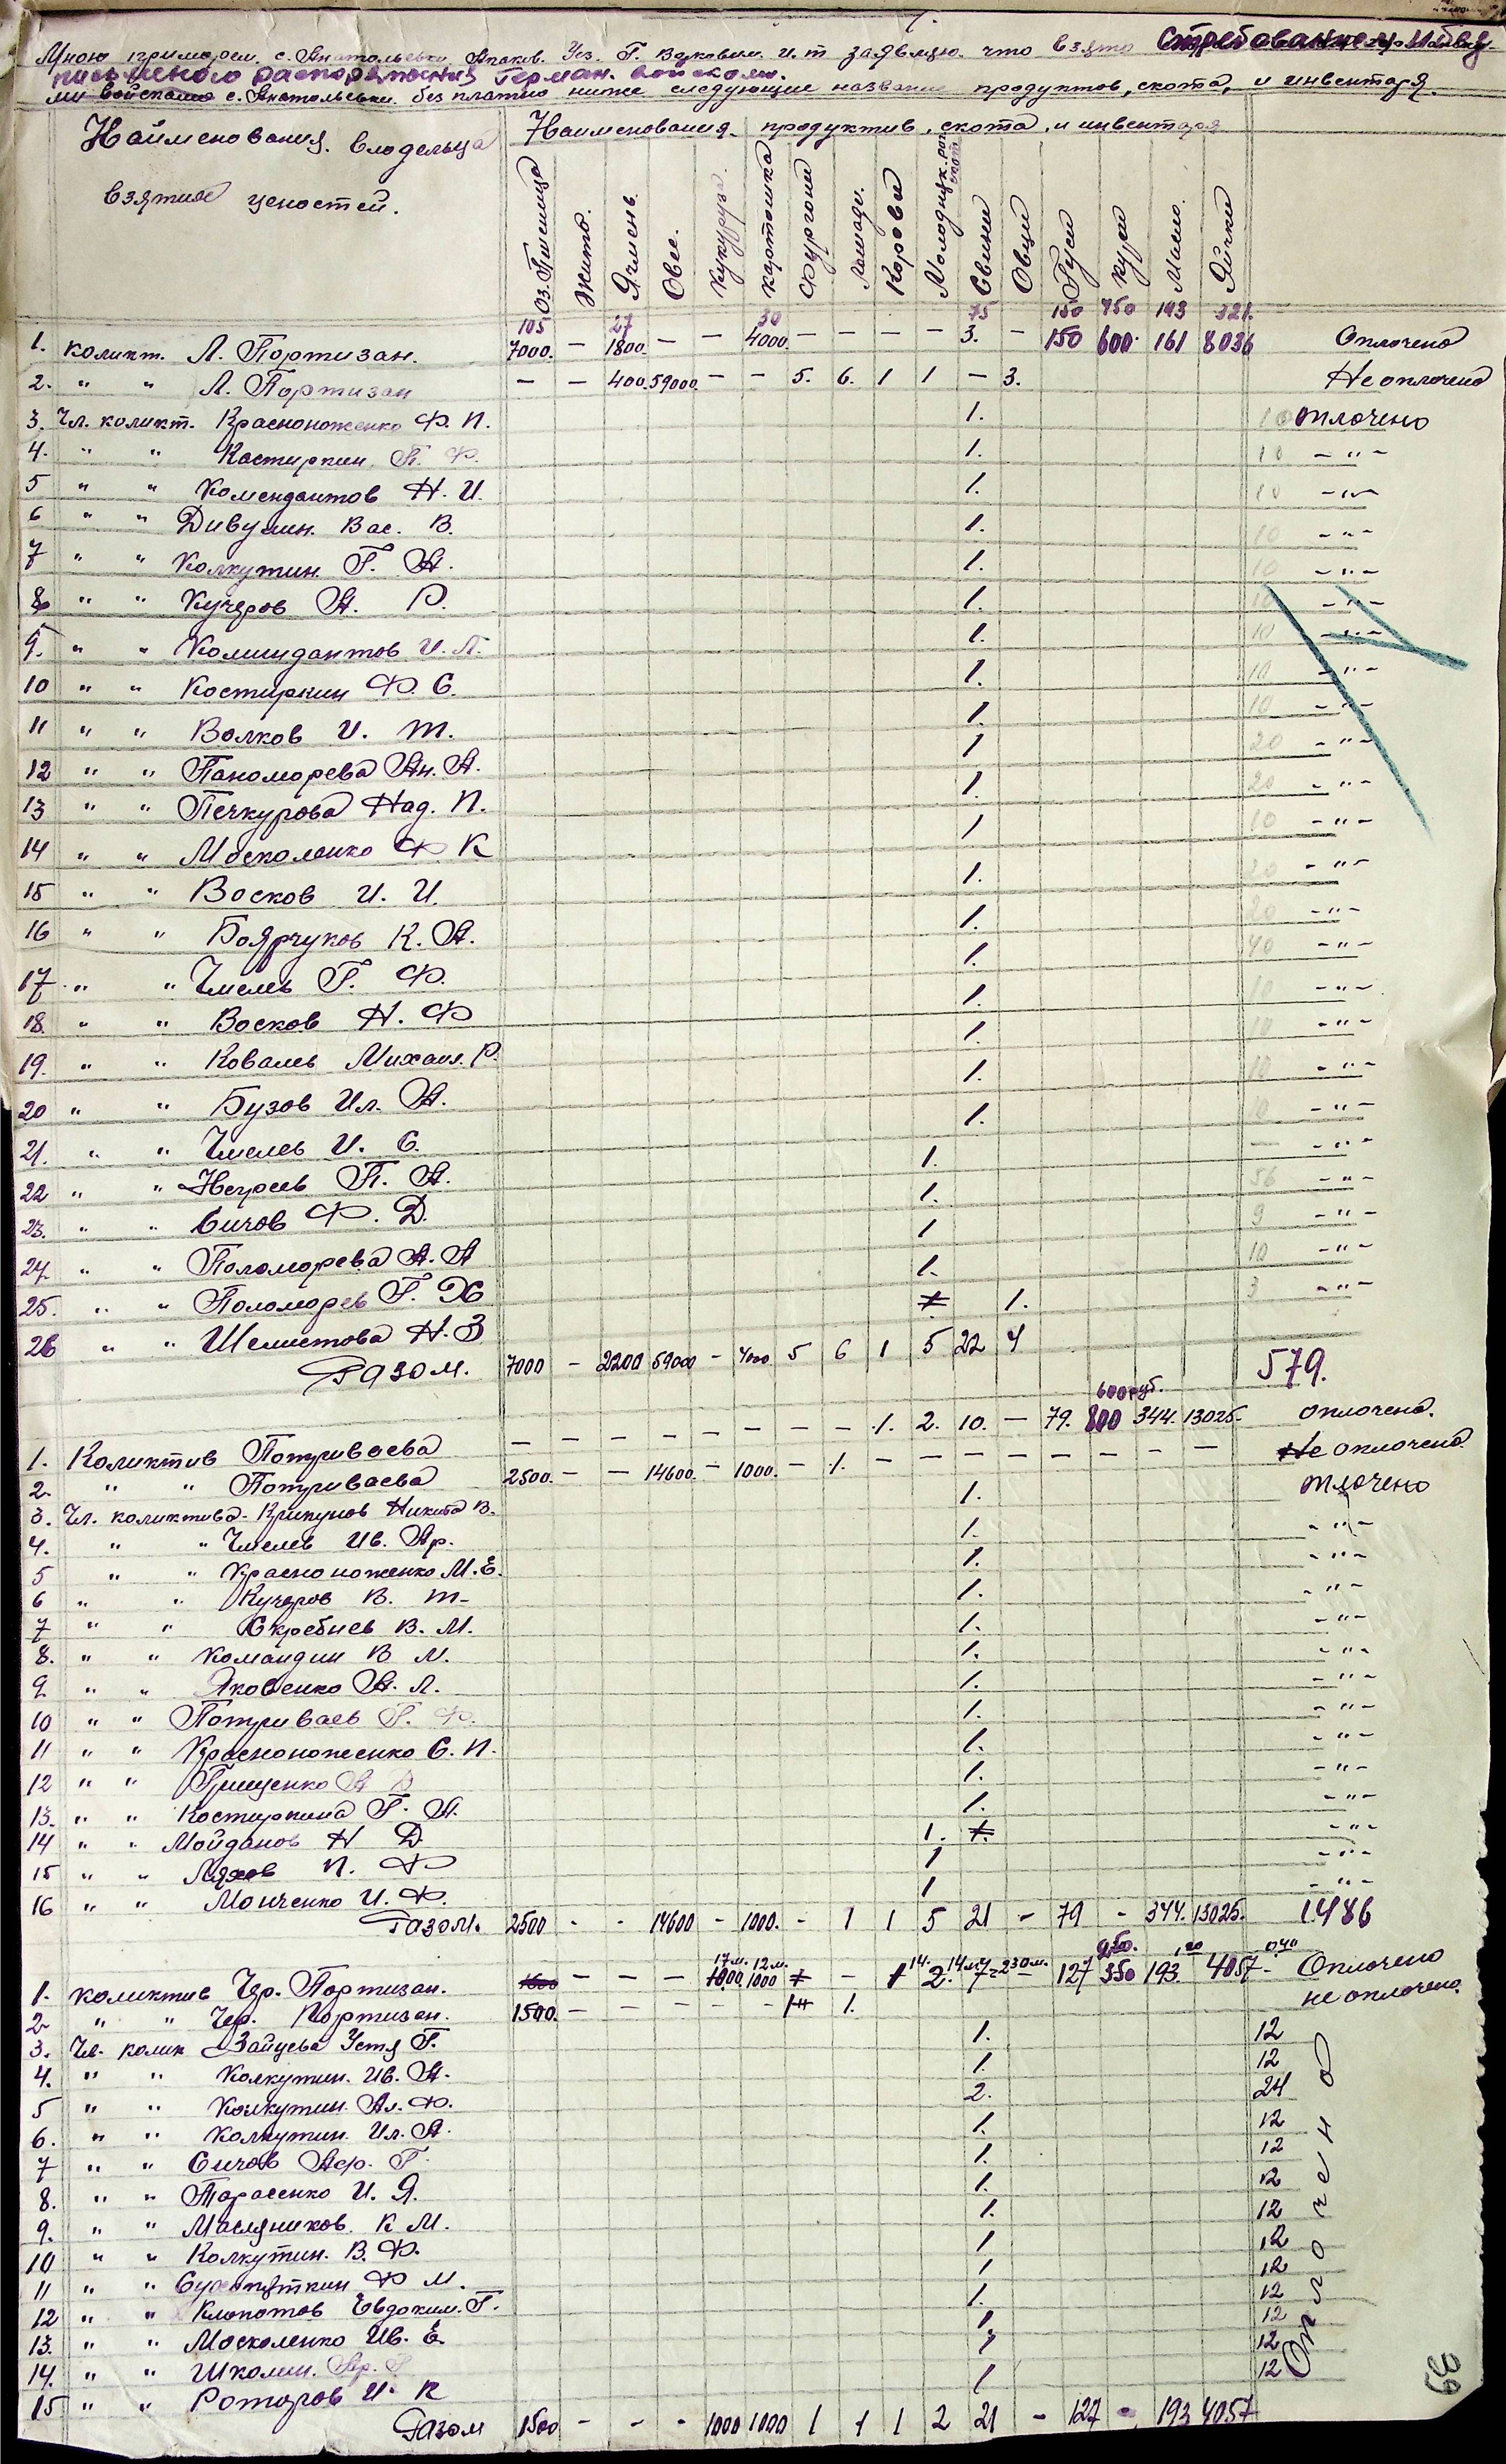 Мною примарем. с. Анатольевки Апаков. Уез. Г. Водкович. И. т заявляю. что взято с требованием и без
письменого распоряжения Герман. войсками.
ми войсками с. Анатольевки. без платно ниже следующие название продуктов, скота, и инвентаря.
Наименования. владельца взятых ценостей.
Наименования. продуктив, скота, и инвентаря
Оз. Пшеница Жито. Ячмень. Овес. Кукуруз. картошка Фургоны Лошади. Коровы Молодняк. рог. скот. Свиньи Овцы Гуси куры Масло. Яички
105 27 30 75 150 450 193 321.
1. коликт. Л. Портизан. 7000. — 1800. — — 4000. — — — — 3. — 150 600. 161 8036 Оплочено
2. " " Л. Портизан — — 400. 59000. — — 5. 6. 1 1 — 3. Не оплочено
3. Чл. коликт. Красноноженко Ф. П. 1. 10 оплочено
4. " " Костиркин П. Ф. 1. 10 - " -
5 " " Комендантов Н. И. 1. 10 - " -
6 " " Дивулин. Вас. В. 1. 10 - " -
7 " " Колкутин. Г. А. 1. 10 - " -
8 " " Кучеров А. Р. 1. 10 - " -
9. " " Комендантов И. П. 1. 10 - " -
10 " " Костиркин Ф. С. 1. 10 - " -
11 " " Волков И. Т. 1. 10 - " -
12 " " Паноморева Ан. А. 1 20 - " -
13 " " Печкурова Над. П. 1. 20 - " -
14 " " Москоленко Ф. К 1 10 - " -
15 " " Восков И. И. 1. 20 - " -
16 " " Боярчуков К. А. 1. 20 - " -
17 " " Чмель Г. Ф. 1. 40 - " -
18. " " Восков Н. Ф 1. 10 - " -
19. " " Коваль Михаил. Р. 1. 10 - " -
20 " " Бузов Ил. А. 1. 10 - " -
21. " " Чмель И. С. 1. 10 - " -
22 " " Негреев П. А. 1. — - " -
23. " " Сичов Ф. Д. 1. 56 - " -
24. " " Поломорева А. А 1 9 - " -
25. " " Поломорев Г. Х 1. 10 - " -
26 " " Шелистова Н. З 1 1. 3 - " -
Разом. 7000 — 2200 59000 — 4000. 5 6 1 5 22 4 579.
600 руб.
1. Коликтив Потриваева — — — — — — — — 1. 2. 10. — 79. 800 344. 13025. оплочено.
2. " " Потриваева 2500. — — 14600. — 1000. — 1. — — — — — — — — Не оплочено.
3. Чл. коликтива - Крипунов Никита В. 1. оплочено
4. " " Чмель Ив. Ар. 1. - " -
5 " " Красноноженко М. Е. 1. - " -
6 " " Кучеров В. Т- 1. - " -
7 " " Скребнев В. М. 1. - " -
8. " " Командин В М. 1. - " -
9 " " Яковенко А. Л. 1. - " -
10 " " Потриваев Г. Ф. 1. - " -
11 " " Красноноженко С. П. 1. - " -
12 " " Грищенко А 1. - " -
13. " " Костиркина Г. А. 1. - " -
14 " " Мойданов Н Д. 1. 1. - " -
15 " " Ляхов П. Ф 1 - " -
16 " " Мойченко И. Ф. 1 - " -
Разом. 2500 - - 14600 - 1000. - 1 1 5 21 - 79 - 344. 13025. 1486
17 м. 12 м. 14. 14 м. 230 м. 0,50. 1,20 0,40
1. коликтив Чер. Портизан. 1500 — — — 1000 1000 1 — 1 2. 7 — 127 350 193. 4057. Оплочено
2. " " Чер. Портизан. 1500. — — — — — 1 1. не оплочено.
3. Чл. колик Зайцева Устя Г. 1. 12
4. " " Колкутин. Ив. А. 1. 12
5 " " Колкутин. Ал. Ф. 2. 24
6. " " Колкутин. Ил. А. 1. 12
7 " " Сичов Аф. Г. 1. 12
8. " " Тарасенко И. Я. 1. 12
9. " " Масляников. К М. 1. 12
10 " " Колкутин. В. Ф. 1 12
11 " " Сухопяткин Ф М. 1 12
12 " " Клопотов Евдоким. Г. 1. 12
13. " " Москоленко Ив. Е. 1. 12
14. " " Школин. Гр. 1 12
15 " " Роторов И. К 1 12
Оплочено
Разом 1500 — - - 1000 1000 1 1 1 2 21 - 127 - 193 4057
39